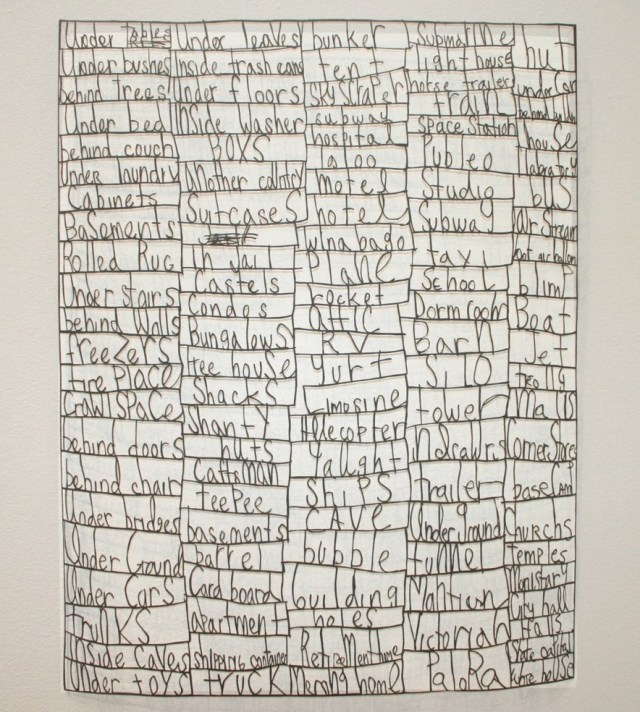 Under tables
Under bushes
behind trees
Under bed
behind couch
Under laundry
Cabinets
Basements
Rolled Rug
Under stairs
behind Walls
freezers
fire Place
Crawl SPace
behind doors
behind chair
Under bridges
Under Ground
Under Cars
TrunKS
inside Caves
Under toys
Under leaves
Inside trash cans
Under floors
InSide Washer
BOXS
Another calntry
SuitcaseS
in jail
Castels
Condos
Bungalows
tree house
Shacks
Shanty
huts
Caftsman
TeePee
basements
barre
Card board
apartment
shipping container
truck
bunker
tent
SkyScraPer
subway
hospital
motel
hotel
winabago
Plane
rocket
attic
RV
Yurt
Limosine
Helecopter
Yaught
ShiPS
CAVE
bubble
building
holes
Submarine
light house
horse trailer
train
Space Station
Publeo
Studio
Subway
taxi
School
Dorm room
Barn
Silo
tower
Trailer
Under ground
tunnel
Victorian
hut
under Car
house
bus
Air Stream
hot air balloon
blimt
Boat
Jet
Malls
Corner Stores
Churchs
Temples
Monistary
City hall